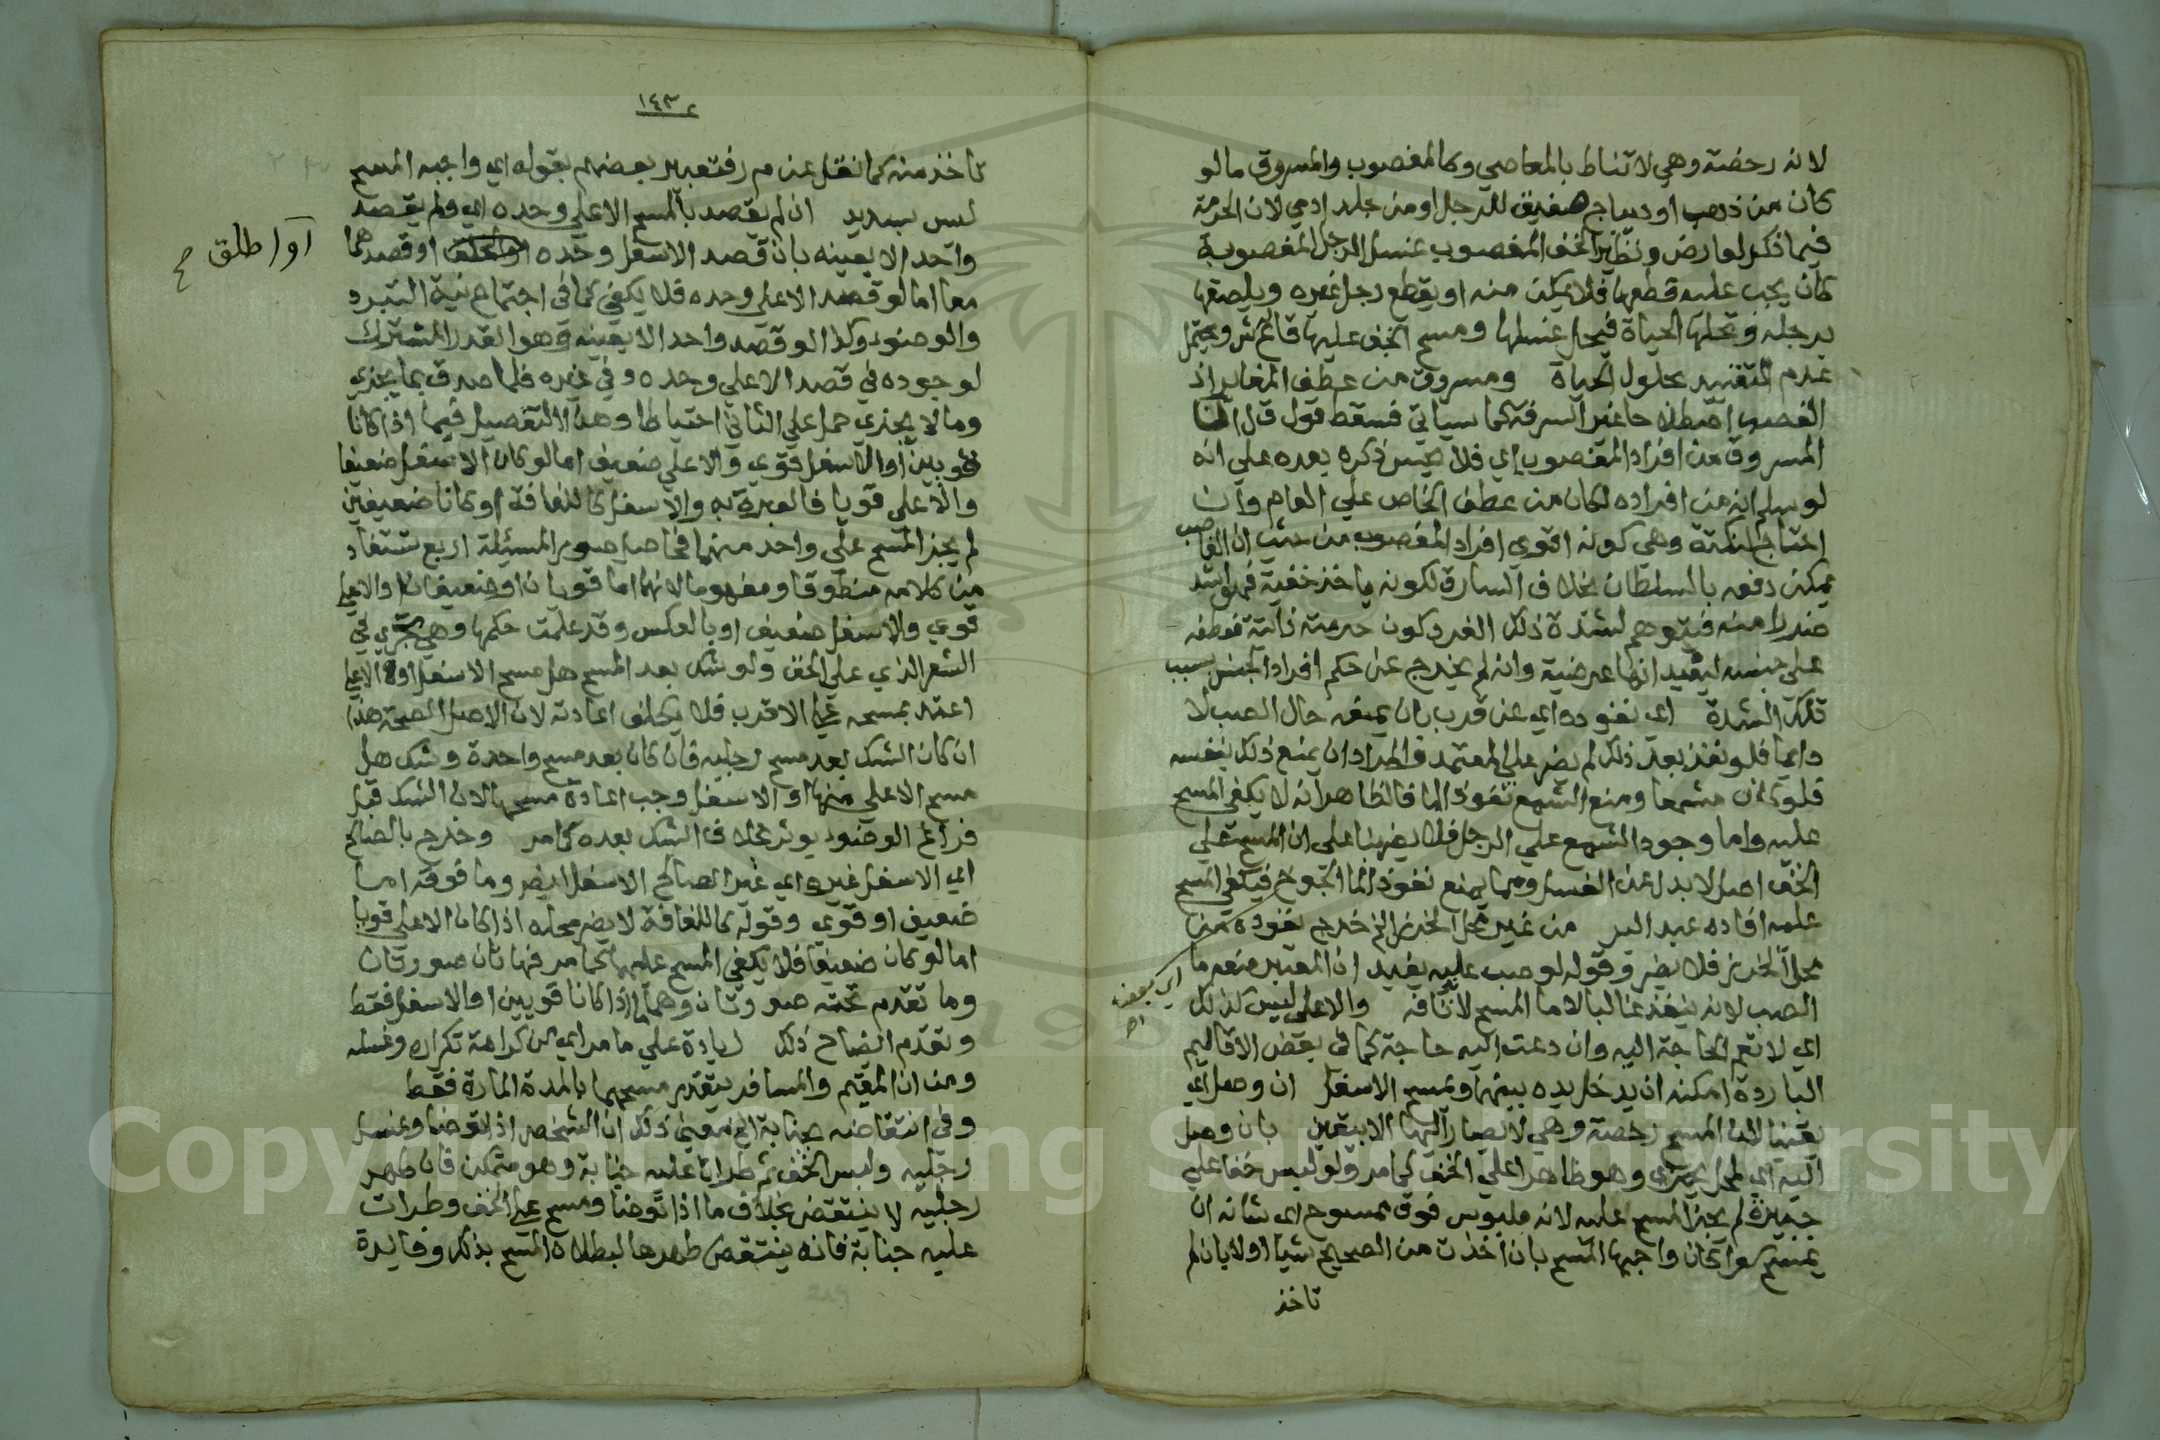 لانه رخصة وهي لا تناط بالمعاصي وكالمغصوب والمسروق ما لو
كان من ذهب او ديباج صفيق للرجل او من جلد ادمي لان الحرمة
فيما ذكر لعارض ونظير الخف المغصوب غسل الرجل المغصوبة
كان يجب عليه قطعها فلا يمكن منه او يقطع رجل غيره ويلصقها
برجله وتحلها الحياة فيحل غسلها ومسح الخف عليها ويحتمل
عدم التقييد بحلول الحياة ومسروق من عطف المغاير اذ
الغصب اصطلاحا غير السرقة كما سياتي فسقط قول
المسروق من افراد المغصوب اي فلا يحسن ذكره بعده على انه
لو سلم انه من افراده لكان من عطف الخاص على العام وان
احتاج لنكتة وهي كونه اقوي افراد المغصوب من حيث ان الغاصب
يمكن دفعه بالسلطان بخلاف السارق لكونه ياخذ خفية فهو اشد
ضررا منه فيتوهم لشدة ذلك الضرر كون حرمته ذاتية فعطفه
على جنسه ليفيد انها عرضية وانه لم يخرج عن حكم افراد الجنس بسبب
تلك الشدة اي نفوده اي عن قرب بان يمنعه حال الصب لا
دايما فلو نفذ بعد ذلك لم يضر على المعتمد والمراد ان يمنع ذلك بنفسه
فلو كان مشمعا ومنع الشمع نفوذ الما فالظاهر انه لا يكفي المسح
عليه واما وجود الشمع على الرجل فلا يضر بنا على ان المسح على
الخف اصل لا بدل عن الغسل ومما يمنع نفوذ الما الجوخ فيكفي المسح
عليه افاده عبد البر من غير محل الخرز الخ خرج نفوده من
محل الخرز فلا يضر وقوله لو صب عليه يفيد ان المعتبر منعه ما
الصب لانه ينفذ غالبا لا ما المسح لانه والاعلى ليس كذلك
اي لا تعم الحاجة اليه وان دعت اليه حاجة كما في بعض الاقاليم
الباردة امكنه ان يدخل يده بينهما ويمسح الاسفل ان وصل اي
يقينا لان المسح رخصة وهي لا يصار اليها الا بيقين بان وصل
اليه اي لمحل يجزي وهو ظاهر اعلى الخف كما مر ولو لبس خفا على
جبيرة لم يجز المسح عليه لانه ملبوس فوق ممسوح اي شانه ان
يمسح سوا كان واجبها المسح بان اخذت من الصحيح شيا اولا بان لم
تاخذ
اي بعضه
اه
١٤٣
تاخذ منه كما نقل عن م ر فتعبير بعضهم بقوله اي واجبه المسح
ليس بسديد ان لم يقصد بالمسح الاعلى وحده اي ولم يقصد
واحدا لا بعينه بان قصد الاسفل وحده او قصدهما
معا اما لو قصد الاعلى وحده فلا يكفي كما في اجتماع نية التبرد
والوضوء وكذا لو قصد واحدا لا بعينه وهو القدر المشترك
لوجوده في قصد الاعلى وحده وفي غيره فلما صدق بما يجزي
وما لا يجزي حمل على الثاني احتياطا وهذا التفصيل فيما اذا كانا
قويين او الاسفل قوي والاعلى ضعيف اما لو كان الاسفل ضعيفا
والاعلى قويا فالعبرة به والاسفل كاللفافة او كانا ضعيفين
لم يجز المسح على واحد منهما فحاصل صور المسئلة اربع تستفاد
من كلامه منطوقا ومفهوما لانهما اما قويان او ضعيفان او الاعلى
قوي والاسفل ضعيف او بالعكس وقد علمت حكمها وهي تجري في
الشعر الذي على الخف ولو شك بعد المسح هل مسح الاسفل او الاعلى
اعتد بمسحه على الاقرب فلا يكلف اعادته لان الاصل الصحة هذا
ان كان الشك بعد مسح رجليه فان كان بعد مسح واحدة وشك هل
مسح الاعلى منها او الاسفل وجب اعادة مسحها لان الشك قبل
فراغ الوضوء يوثر بخلاف الشك بعده كما مر وخرج بالصالح
اي الاسفل غيره اي غير الصالح الاسفل ايضر وما فوقه اما
ضعيف او قوي وقوله كاللفافة لا يضر محله اذا كان الاعلى قويا
اما لو كان ضعيفا فلا يكفي المسح عليهما كما مر فهاتان صورتان
وما تقدم تحته صورتان وهما اذا كانا قويين او الاسفل فقط
وتقدم ايضاح ذلك زيادة على ما مر اي من كراهة تكراره وغسله
ومن ان المقيم والمسافر يتقدر مسحهما بالمدة المارة فقط
وفي انتقاضه جنابة الخ معنى ذلك ان الشخص اذا توضا وغسل
رجليه ولبس الخف ثم طرات عليه جنابة وهو متمكن فان طهر
رجليه لا ينتقض بخلاف ما اذا توضا ومسح على الخف وطرات
عليه جنابة فانه ينتقض طهرها لبطلان المسح بذلك وفايدة
او اطلق صح
Copyright © King Saud University